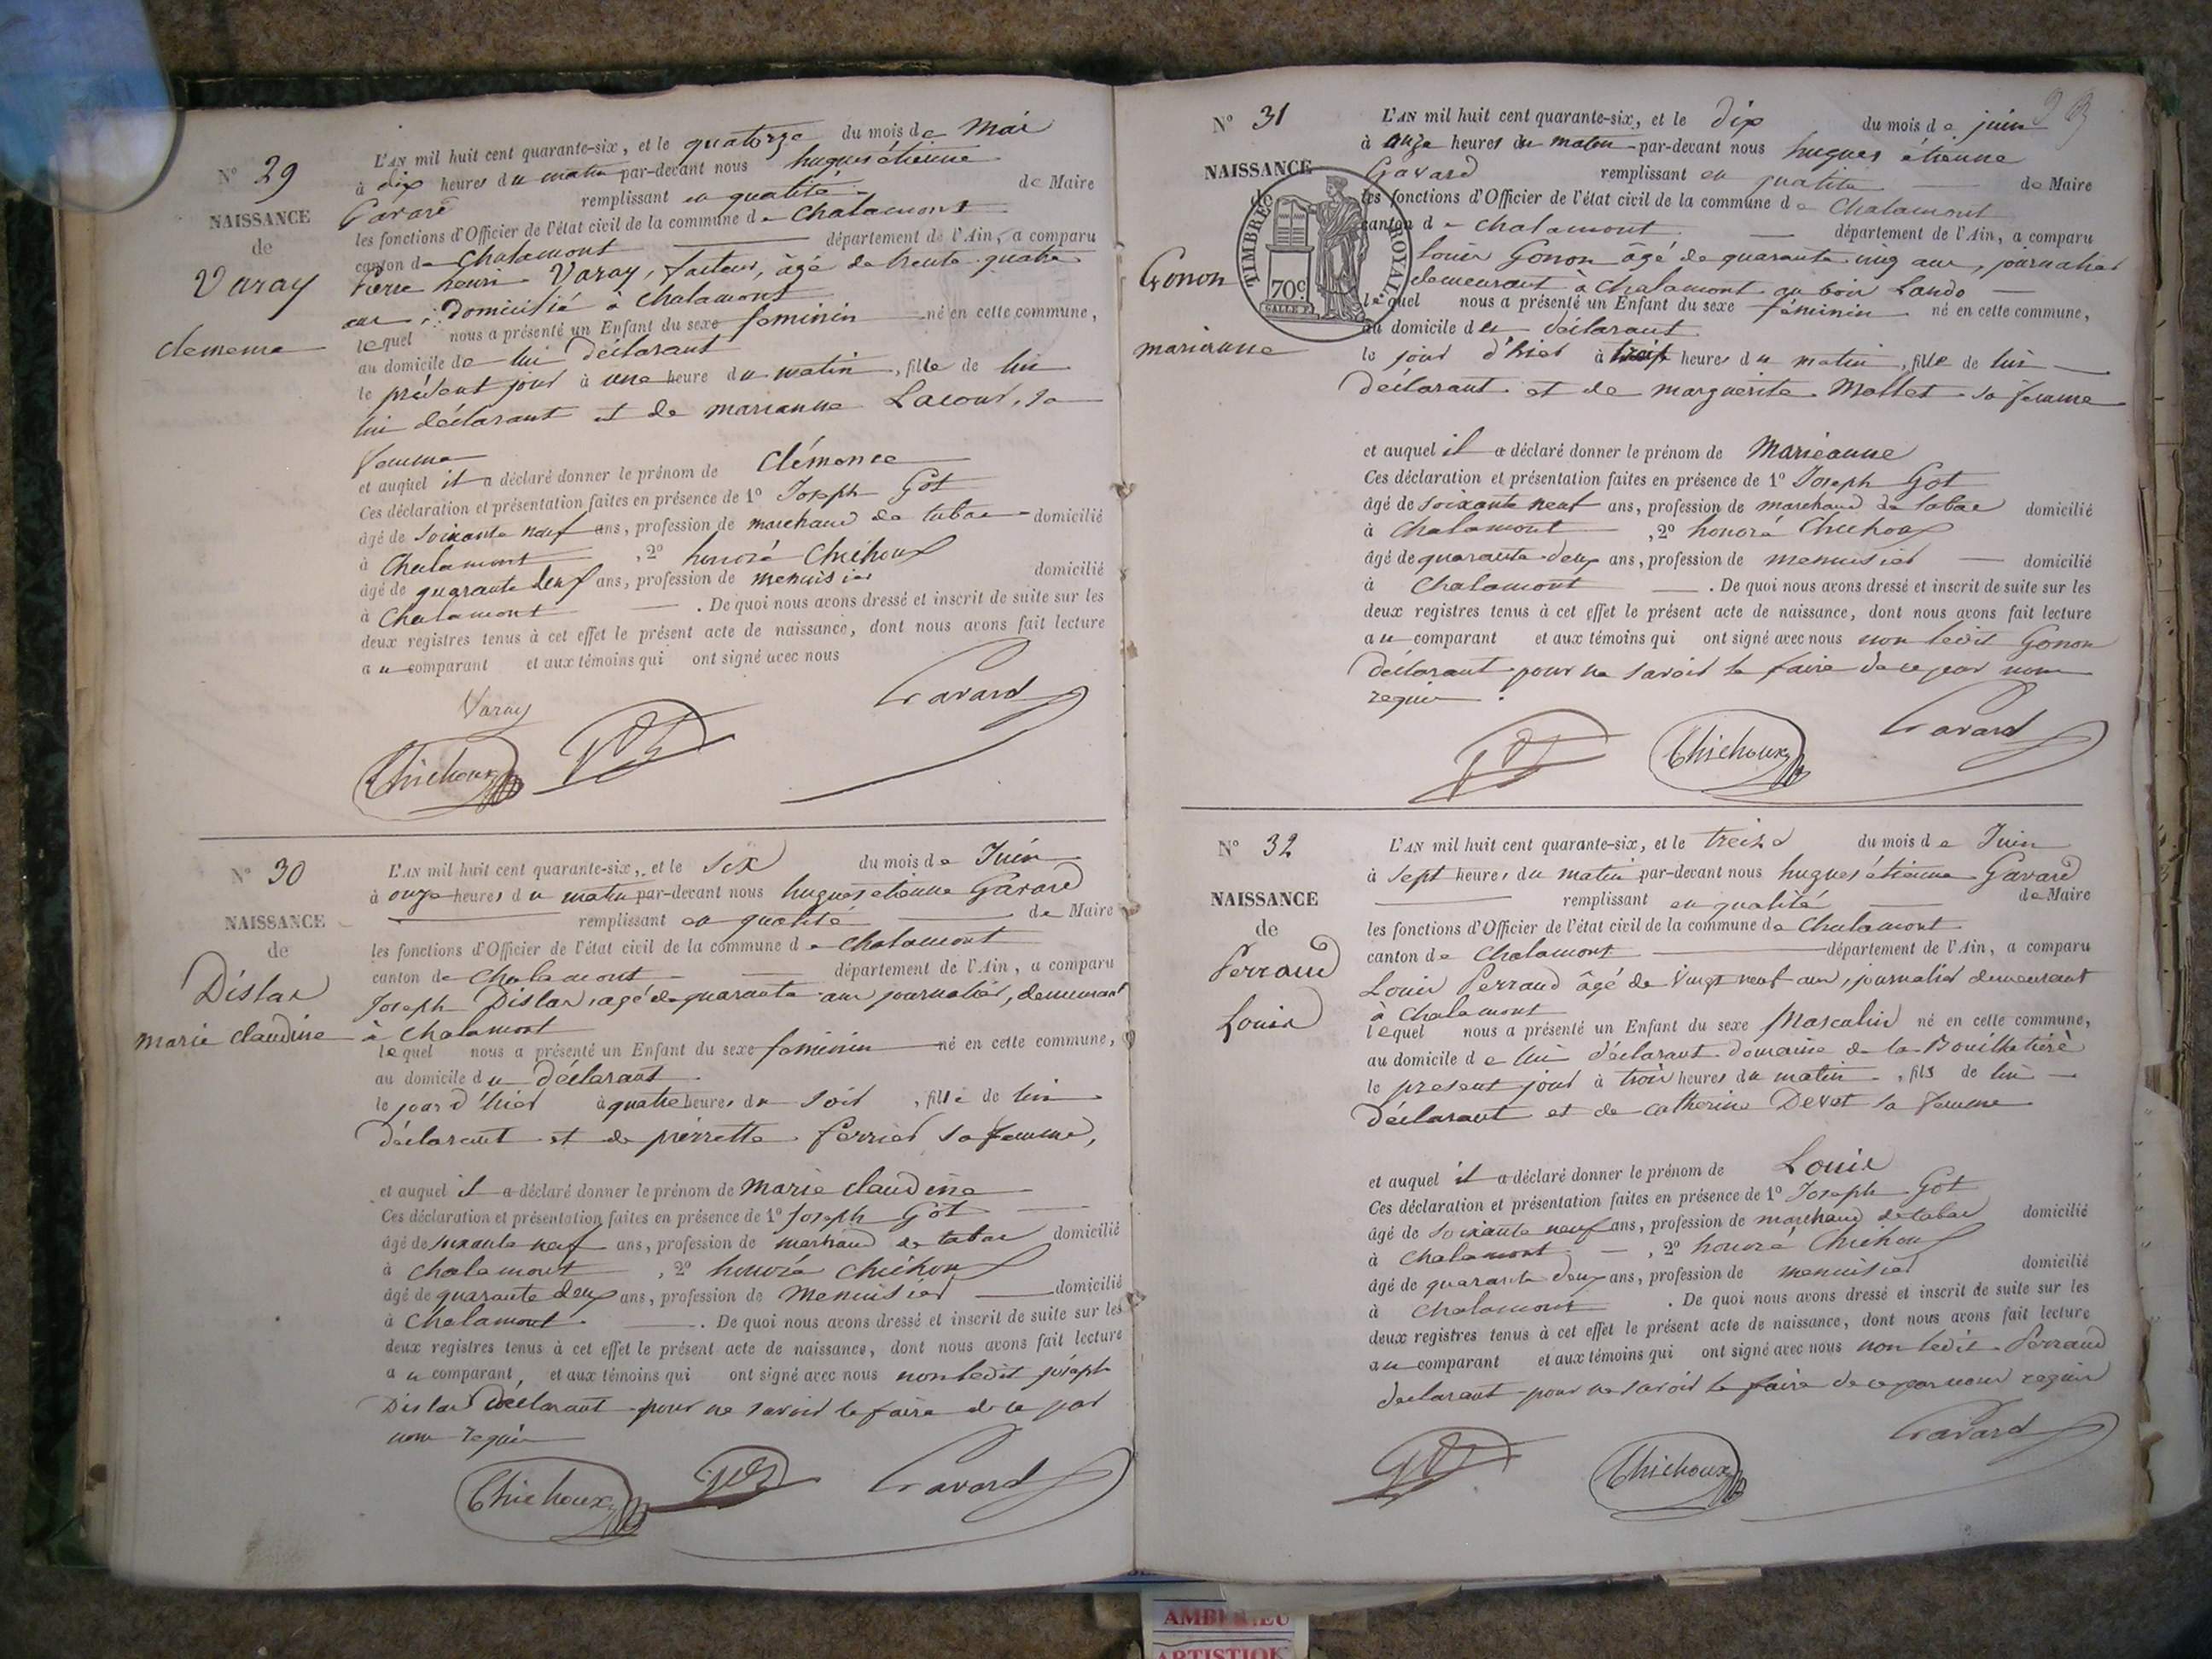 N° 29
NAISSANCE
de
Varay
clemence
L'AN mil huit cent quarante-six, et le quatorze du mois de Mai
à dix heures du matin par-devant nous hugues étienne
Gavard remplissant en qualité de Maire
les fonctions d'Officier de l'état civil de la commune de Chalamont
canton de Chalamont département de l'Ain, a comparu
Pierre henri Varay, facteur, âgé de trente quatre
ans, domicilié à Chalamont
lequel nous a présenté un Enfant du sexe feminin né en cette commune,
au domicile de lui déclarant
le présent jour à une heure du matin, fille de lui
lui déclarant et de marianne Lacour, sa
femme
et auquel il a déclaré donner le prénom de Clémence
Ces déclaration et présentation faites en présence de 1° Joseph Got
âgé de soixante neuf ans, profession de marchand de tabac domicilié
à Chalamont, 2° honoré Chichoux
âgé de quarante deux ans, profession de menuisier domicilié
à Chalamont. De quoi nous avons dressé et inscrit de suite sur les
deux registres tenus à cet effet le présent acte de naissance, dont nous avons fait lecture
au comparant et aux témoins qui ont signé avec nous
Varay Gavard
Chichoux Got
N° 30
NAISSANCE
de
Dislar
marie claudine
L'AN mil huit cent quarante-six, et le six du mois de Juin
à onze heures du matin par-devant nous hugues etienne Gavard
remplissant en qualité de Maire
les fonctions d'Officier de l'état civil de la commune de Chalamont
canton de Chalamont département de l'Ain, a comparu
Joseph Dislar, agé de quarante ans journalier, demeurant
à Chalamont
lequel nous a présenté un Enfant du sexe feminin né en cette commune,
au domicile du déclarant
le jour d'hier à quatre heures du soir, fille de lui
déclarant et de pierrette Perrier sa femme,
et auquel il a déclaré donner le prénom de Marie claudine
Ces déclaration et présentation faites en présence de 1° Joseph Got
âgé de soixante neuf ans, profession de marchand de tabac domicilié
à Chalamont, 2° honoré Chichoux
âgé de quarante deux ans, profession de Menuisier domicilié
à Chalamont. De quoi nous avons dressé et inscrit de suite sur les
deux registres tenus à cet effet le présent acte de naissance, dont nous avons fait lecture
au comparant, et aux témoins qui ont signé avec nous non ledit joseph
Dislar déclarant pour ne savoir le faire de ce par
nous requis
Chichoux Got Gavard
23
N° 31
NAISSANCE
de
Gonon
marieanne
TIMBRE ROYAL
70c
L'AN mil huit cent quarante-six, et le dix du mois de juin
à onze heures du matin par-devant nous hugues étienne
Gavard remplissant en qualité de Maire
les fonctions d'Officier de l'état civil de la commune de Chalamont
canton de Chalamont département de l'Ain, a comparu
Louis Gonon âgé de quarante cinq ans, journalier
demeurant à Chalamont au bois Lando
lequel nous a présenté un Enfant du sexe féminin né en cette commune,
au domicile du déclarant
le jour d'hier à trois heures du matin, fille de lui
déclarant et de marguerite Mollet sa femme
et auquel il a déclaré donner le prénom de Marieanne
Ces déclaration et présentation faites en présence de 1° Joseph Got
âgé de soixante neuf ans, profession de marchand de tabac domicilié
à Chalamont, 2° honoré Chichoux
âgé de quarante deux ans, profession de menuisier domicilié
à Chalamont. De quoi nous avons dressé et inscrit de suite sur les
deux registres tenus à cet effet le présent acte de naissance, dont nous avons fait lecture
au comparant et aux témoins qui ont signé avec nous non ledit Gonon
déclarant pour ne savoir le faire de ce par nous
requis
Got Chichoux Gavard
N° 32
NAISSANCE
de
Perraud
Louis
L'AN mil huit cent quarante-six, et le treize du mois de Juin
à sept heures du matin par-devant nous hugues étienne Gavard
remplissant en qualité de Maire
les fonctions d'Officier de l'état civil de la commune de Chalamont
canton de Chalamont département de l'Ain, a comparu
Louis Perraud âgé de vingt neuf ans, journalier demeurant
à Chalamont
lequel nous a présenté un Enfant du sexe Masculin né en cette commune,
au domicile de lui déclarant domaine de la
le present jour à trois heures du matin, fils de lui
déclarant et de catherine Devet sa femme
et auquel il a déclaré donner le prénom de Louis
Ces déclaration et présentation faites en présence de 1° Joseph Got
âgé de soixante neuf ans, profession de marchand de tabac domicilié
à Chalamont, 2° honoré Chichoux
âgé de quarante deux ans, profession de menuisier domicilié
à Chalamont. De quoi nous avons dressé et inscrit de suite sur les
deux registres tenus à cet effet le présent acte de naissance, dont nous avons fait lecture
au comparant et aux témoins qui ont signé avec nous non ledit Perraud
declarant pour ne savoir le faire de ce par nous requis
Got Chichoux Gavard